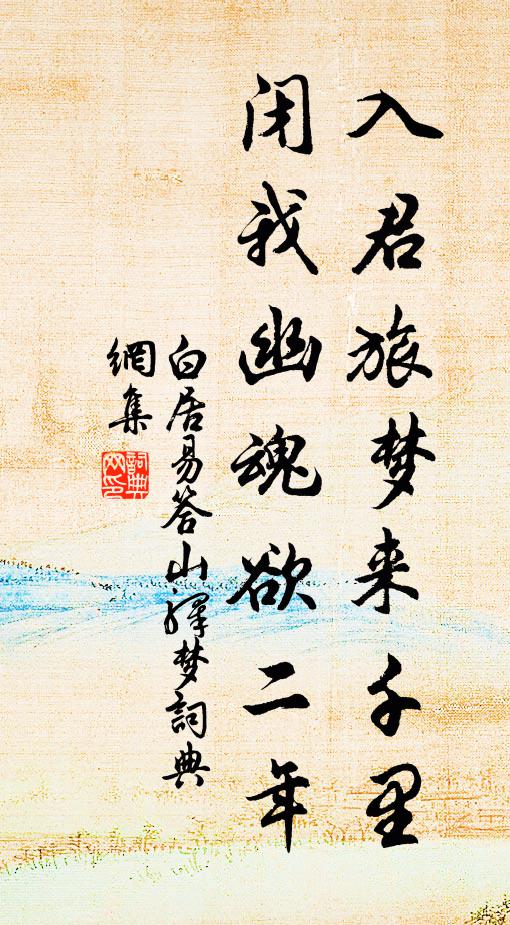 入君旅梦来千里
闭我幽魂欲二年
白居易答山驛梦詞典
網集
詞典
网印